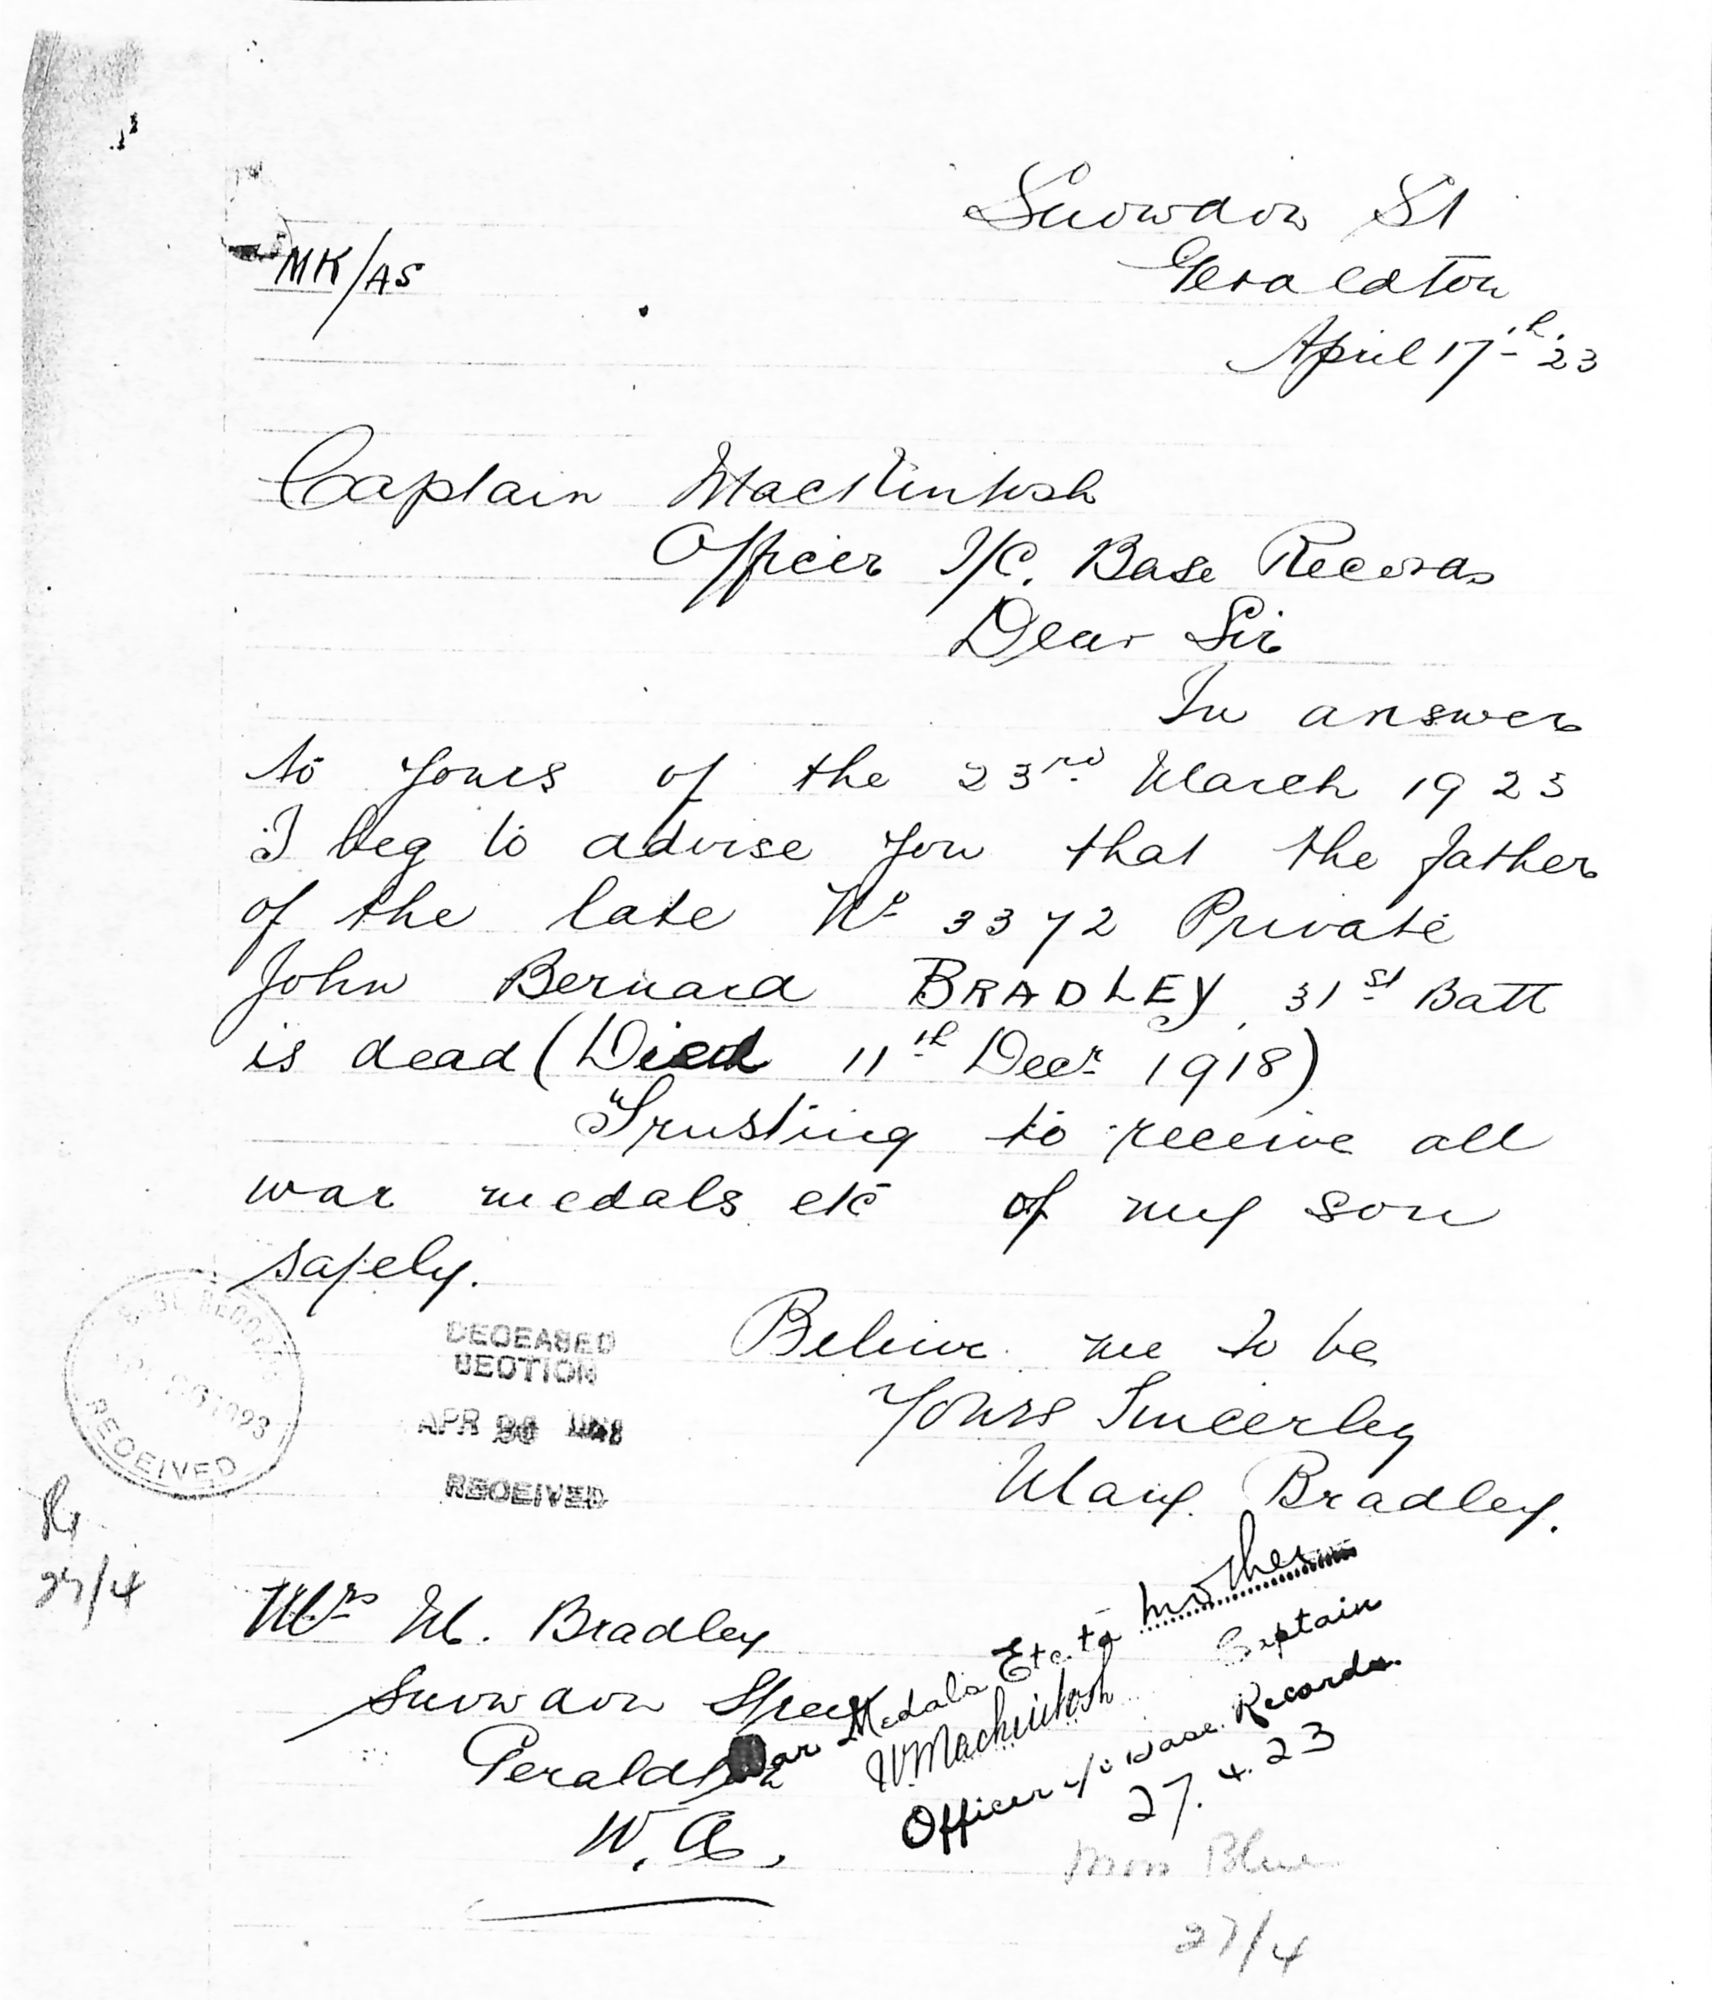 Snowdon St
Geraldton
MK/AS
April 17th 23
Captain MacKintosh
Officer I/C. Base Records
Dear Sir
In answer
to yours of the 23rd March 1923
I beg to advise you that the father
of the late No 3372 Private
John Bernard BRADLEY, 31st Batt
is dead (Died 11th Decr 1918)
Trusting to receive all
war medals etc of my son
safely.
Believe me to be
Yours Sincerley
Mary Bradley.
BASE RECORDS
RECEIVED
DECEASED
SECTION
APR
RECEIVED
27/4
Mrs M. Bradley
Snowdon Street
Geraldton
W.A.
War Medals Etc. to mother
W Mackintosh Captain
Officer i/c Base Records.
27.4.23
Blue
27/4